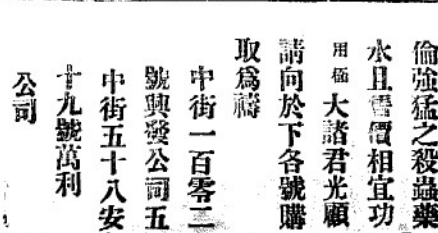 倫強猛之殺蟲藥
水且售價相宜功
用極大諸君光顧
請向於下各號購
取爲禱
中街一百零二
號興發公司五
中街五十八安
十九號萬利
公司